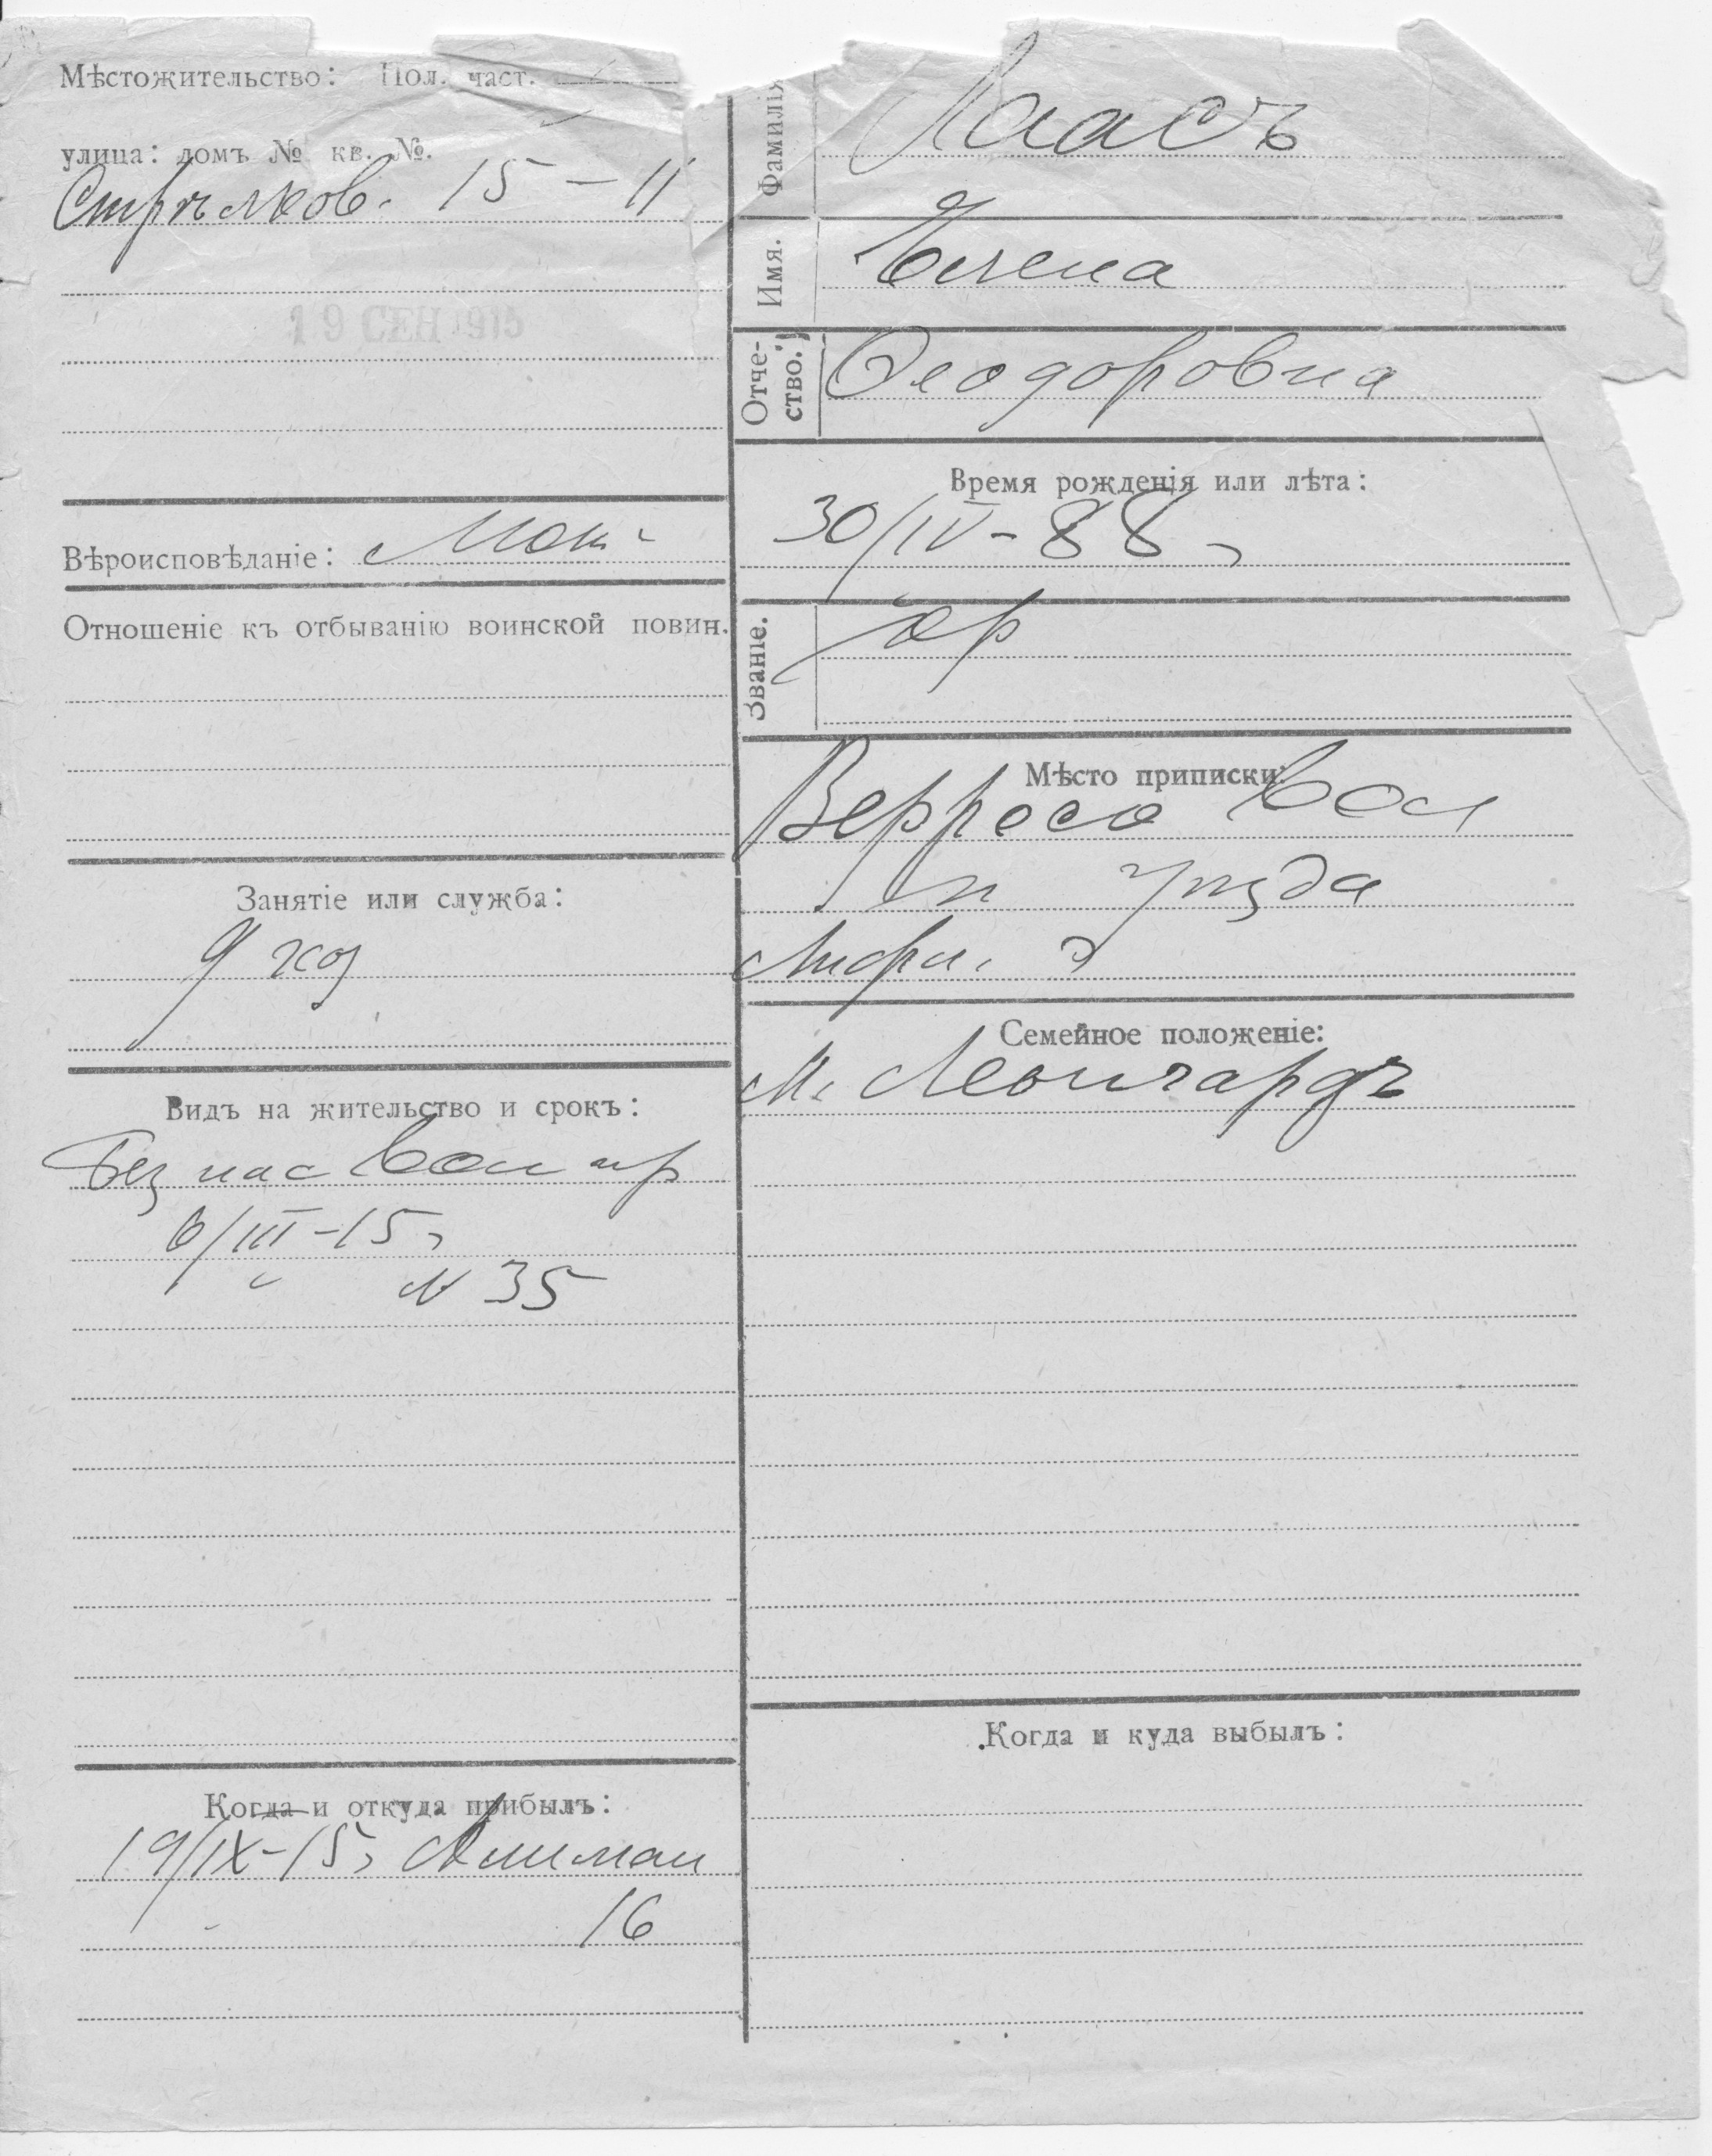 Мѣстожительство: Пол. част.
улица: домъ № кв. №.
Стрѣлков. 15 – 11
19 СЕН 1915
Вѣроисповѣданіе: Лют.
Отношеніе къ отбыванію воинской повин.
Занятіе или служба:
Видъ на жительство и срокъ:
Без пас
6/III-15 г
№ 35
Когда и откуда прибылъ:
19/IX-15 г
16
Фамилія
Лаасъ
Имя.
Елена
Отчество.
Ѳеодоровна
Время рожденія или лѣта:
30/IV-88 г
Званіе.
кр
Мѣсто приписки:
Верроск вол
и уѣзда
Лифл. г
Семейное положеніе:
м. Леонгардъ
Когда и куда выбылъ: